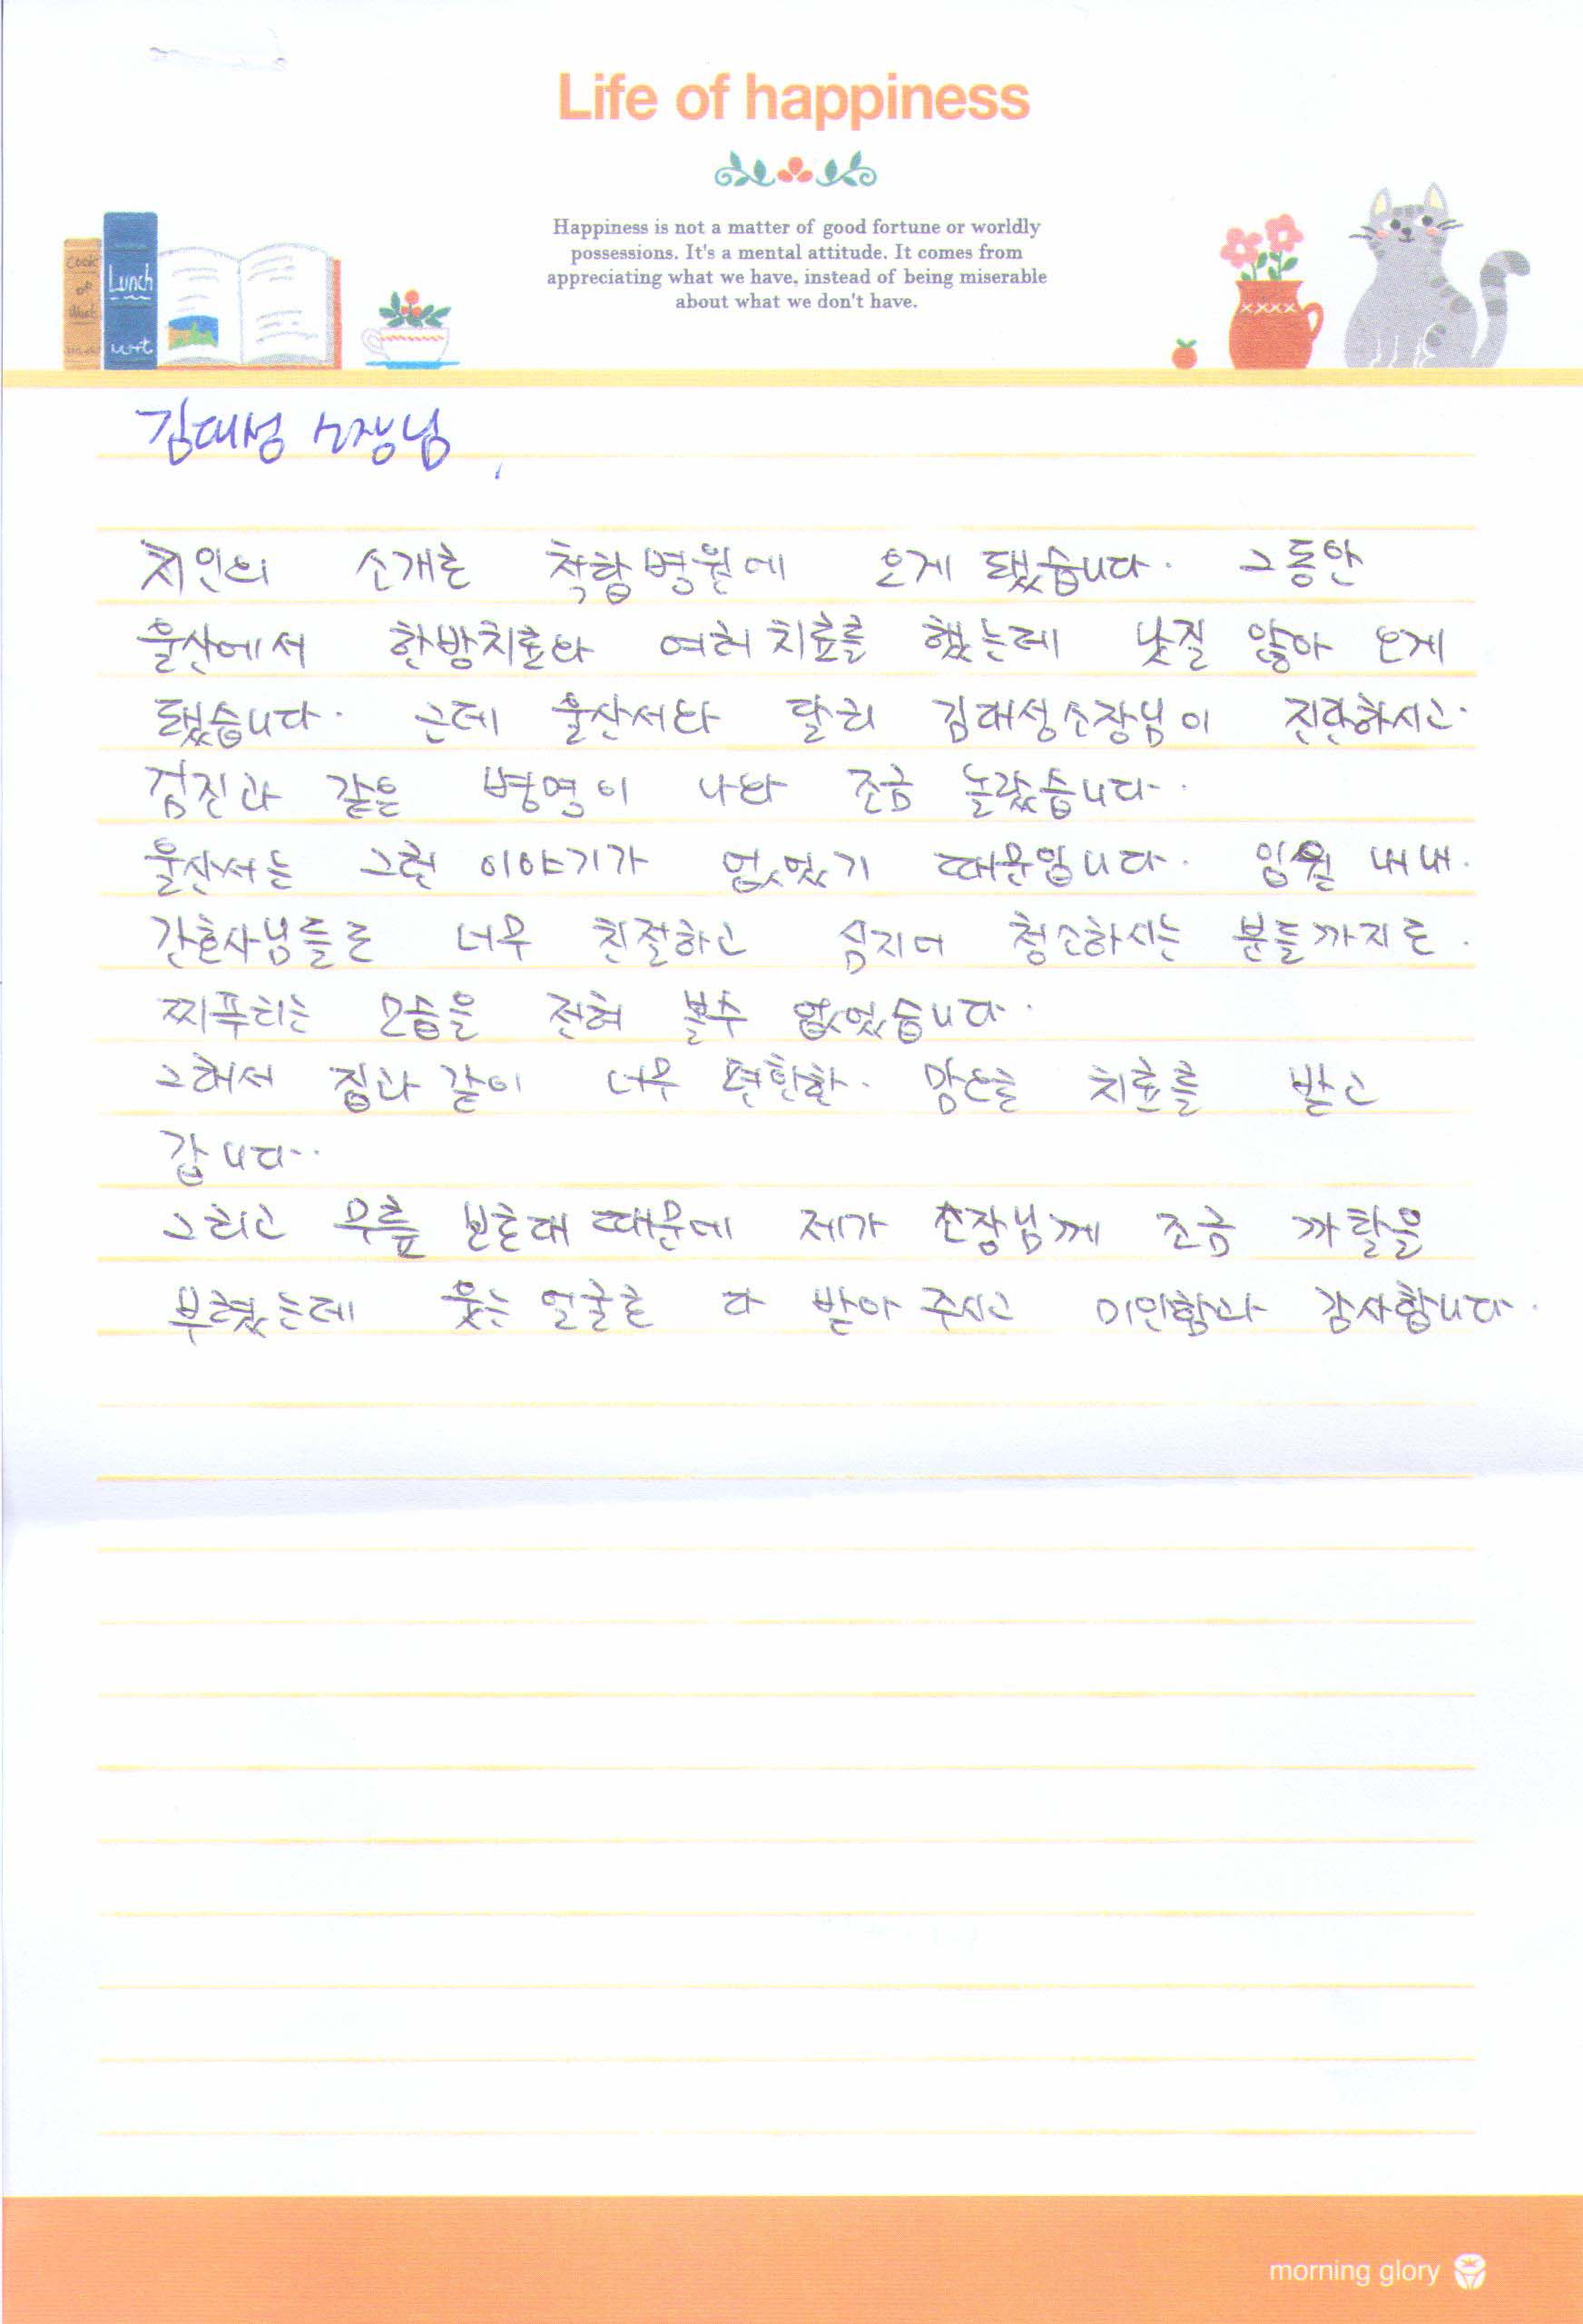 Life of happiness
Happiness is not a matter of good fortune or worldly
possessions. It's a mental attitude. It comes from
appreciating what we have, instead of being miserable
about what we don't have.
Cook
OF
Lunch
김대성 소장님,
지인의 소개로 착함병원에 오게 됐습니다. 그동안
울산에서 한방치료와 여러 치료를 했는데 낫질 않아 오게
됐습니다. 근데 울산서와 달리 김대성소장님이 진관하시고.
검진과 같은 병명이 나와 조금 놀랐습니다.
울산서는 그런 이야기가 없었기 때문입니다. 입원 내내.
간호사님들도 너무 친절하고 심지어 청소하시는 분들까지도.
찌푸리는 모습을 전혀 볼수 없었습니다.
그래서 집과 같이 너무 편한한. 맘으로 치료를 받고
갑니다..
그리고 무릎 보호대 때문에 제가 소장님께 조금 까탈을
부렸는데 웃는 얼굴로 다 받아 주시고 미안함과 감사합니다.
morning glory